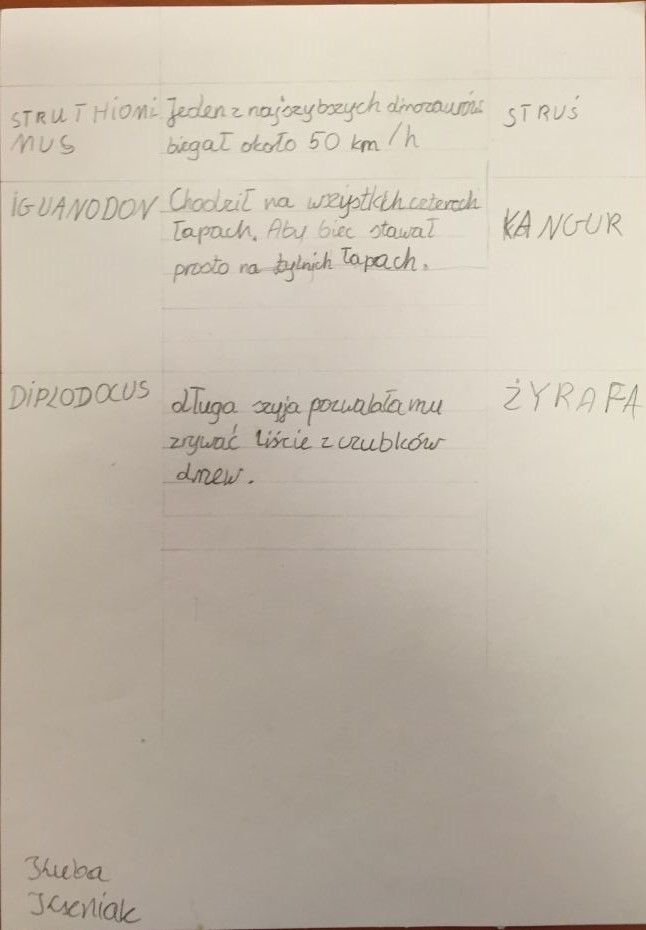 STRUTHIOMI Jeden z najszybszych dinozaurów STRUŚ
MUS biegał około 50 km/h
IGUANODON Chodził na wszystkich czterech KANGUR
łapach. Aby biec stawał
prosto na tylnich łapach.
DIPLODOCUS długa szyja pozwalała mu ŻYRAFA
zrywać liście z czubków
drzew.
Kuba